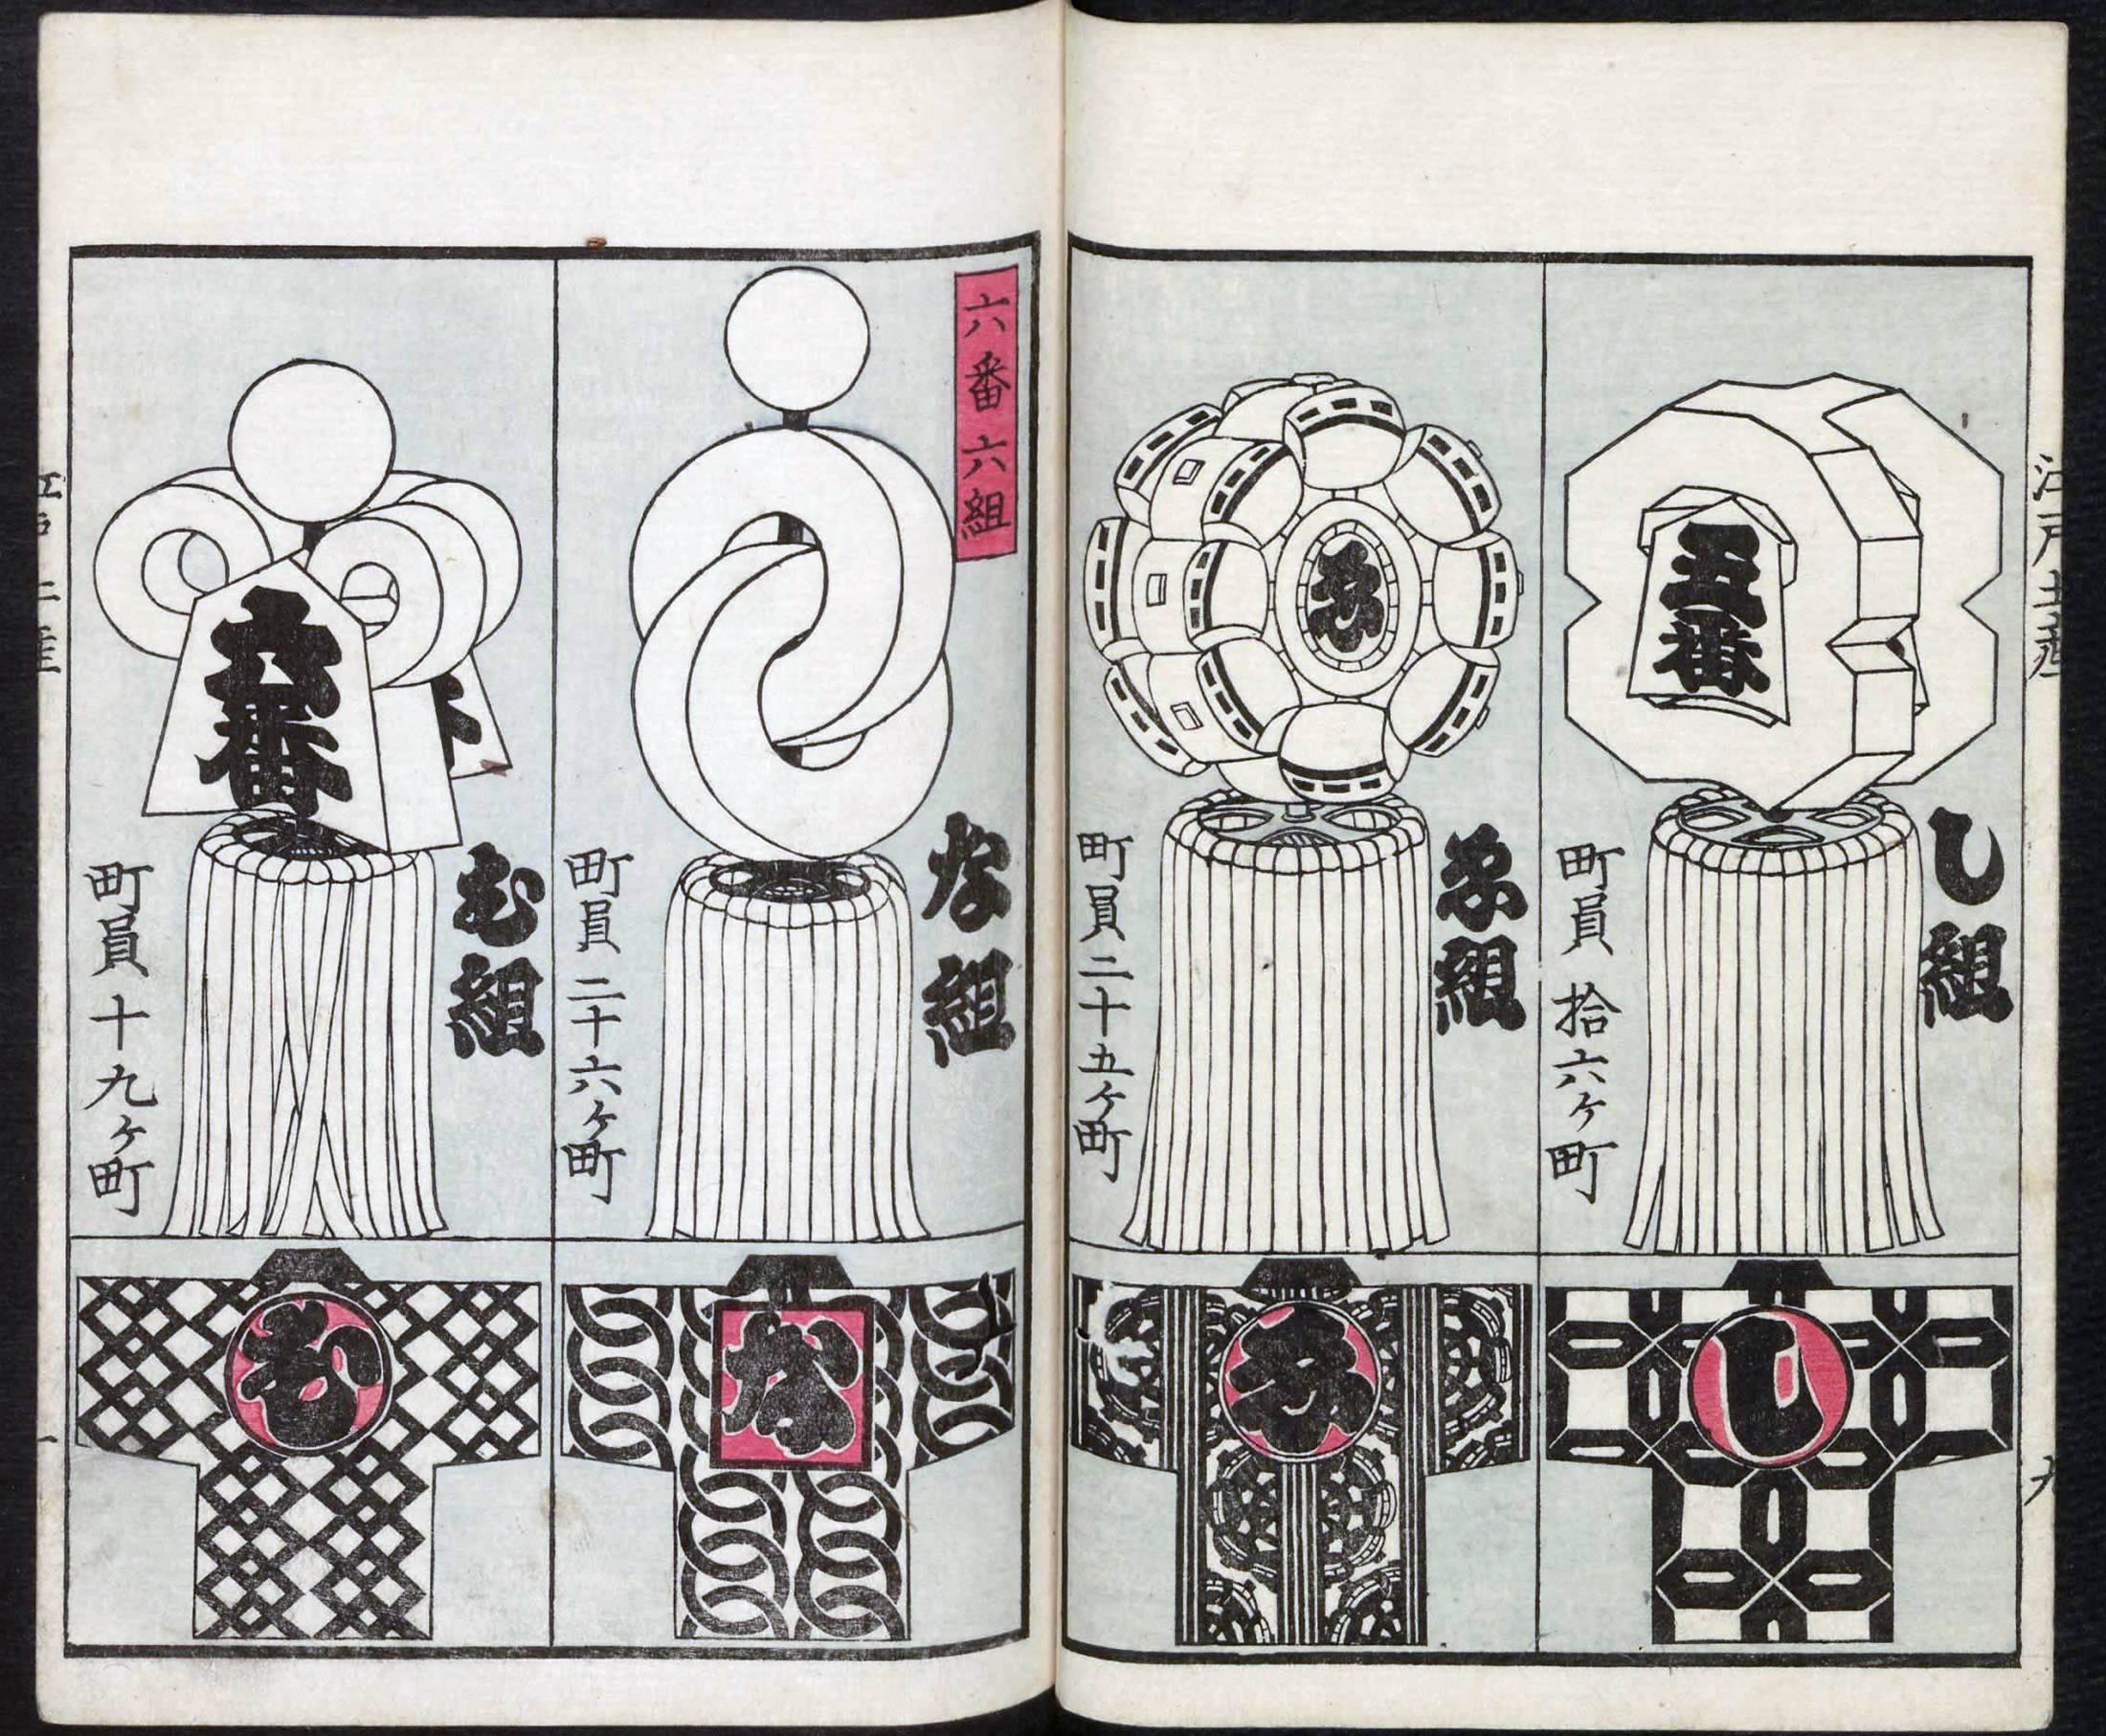 江戸土産
し組
町員拾六ヶ町
五番
し
ゑ組
町員二十五ヶ町
ゑ
ゑ
六番六組
な組
町員二十六ヶ町
な
む組
町員十九ヶ町
六番
む